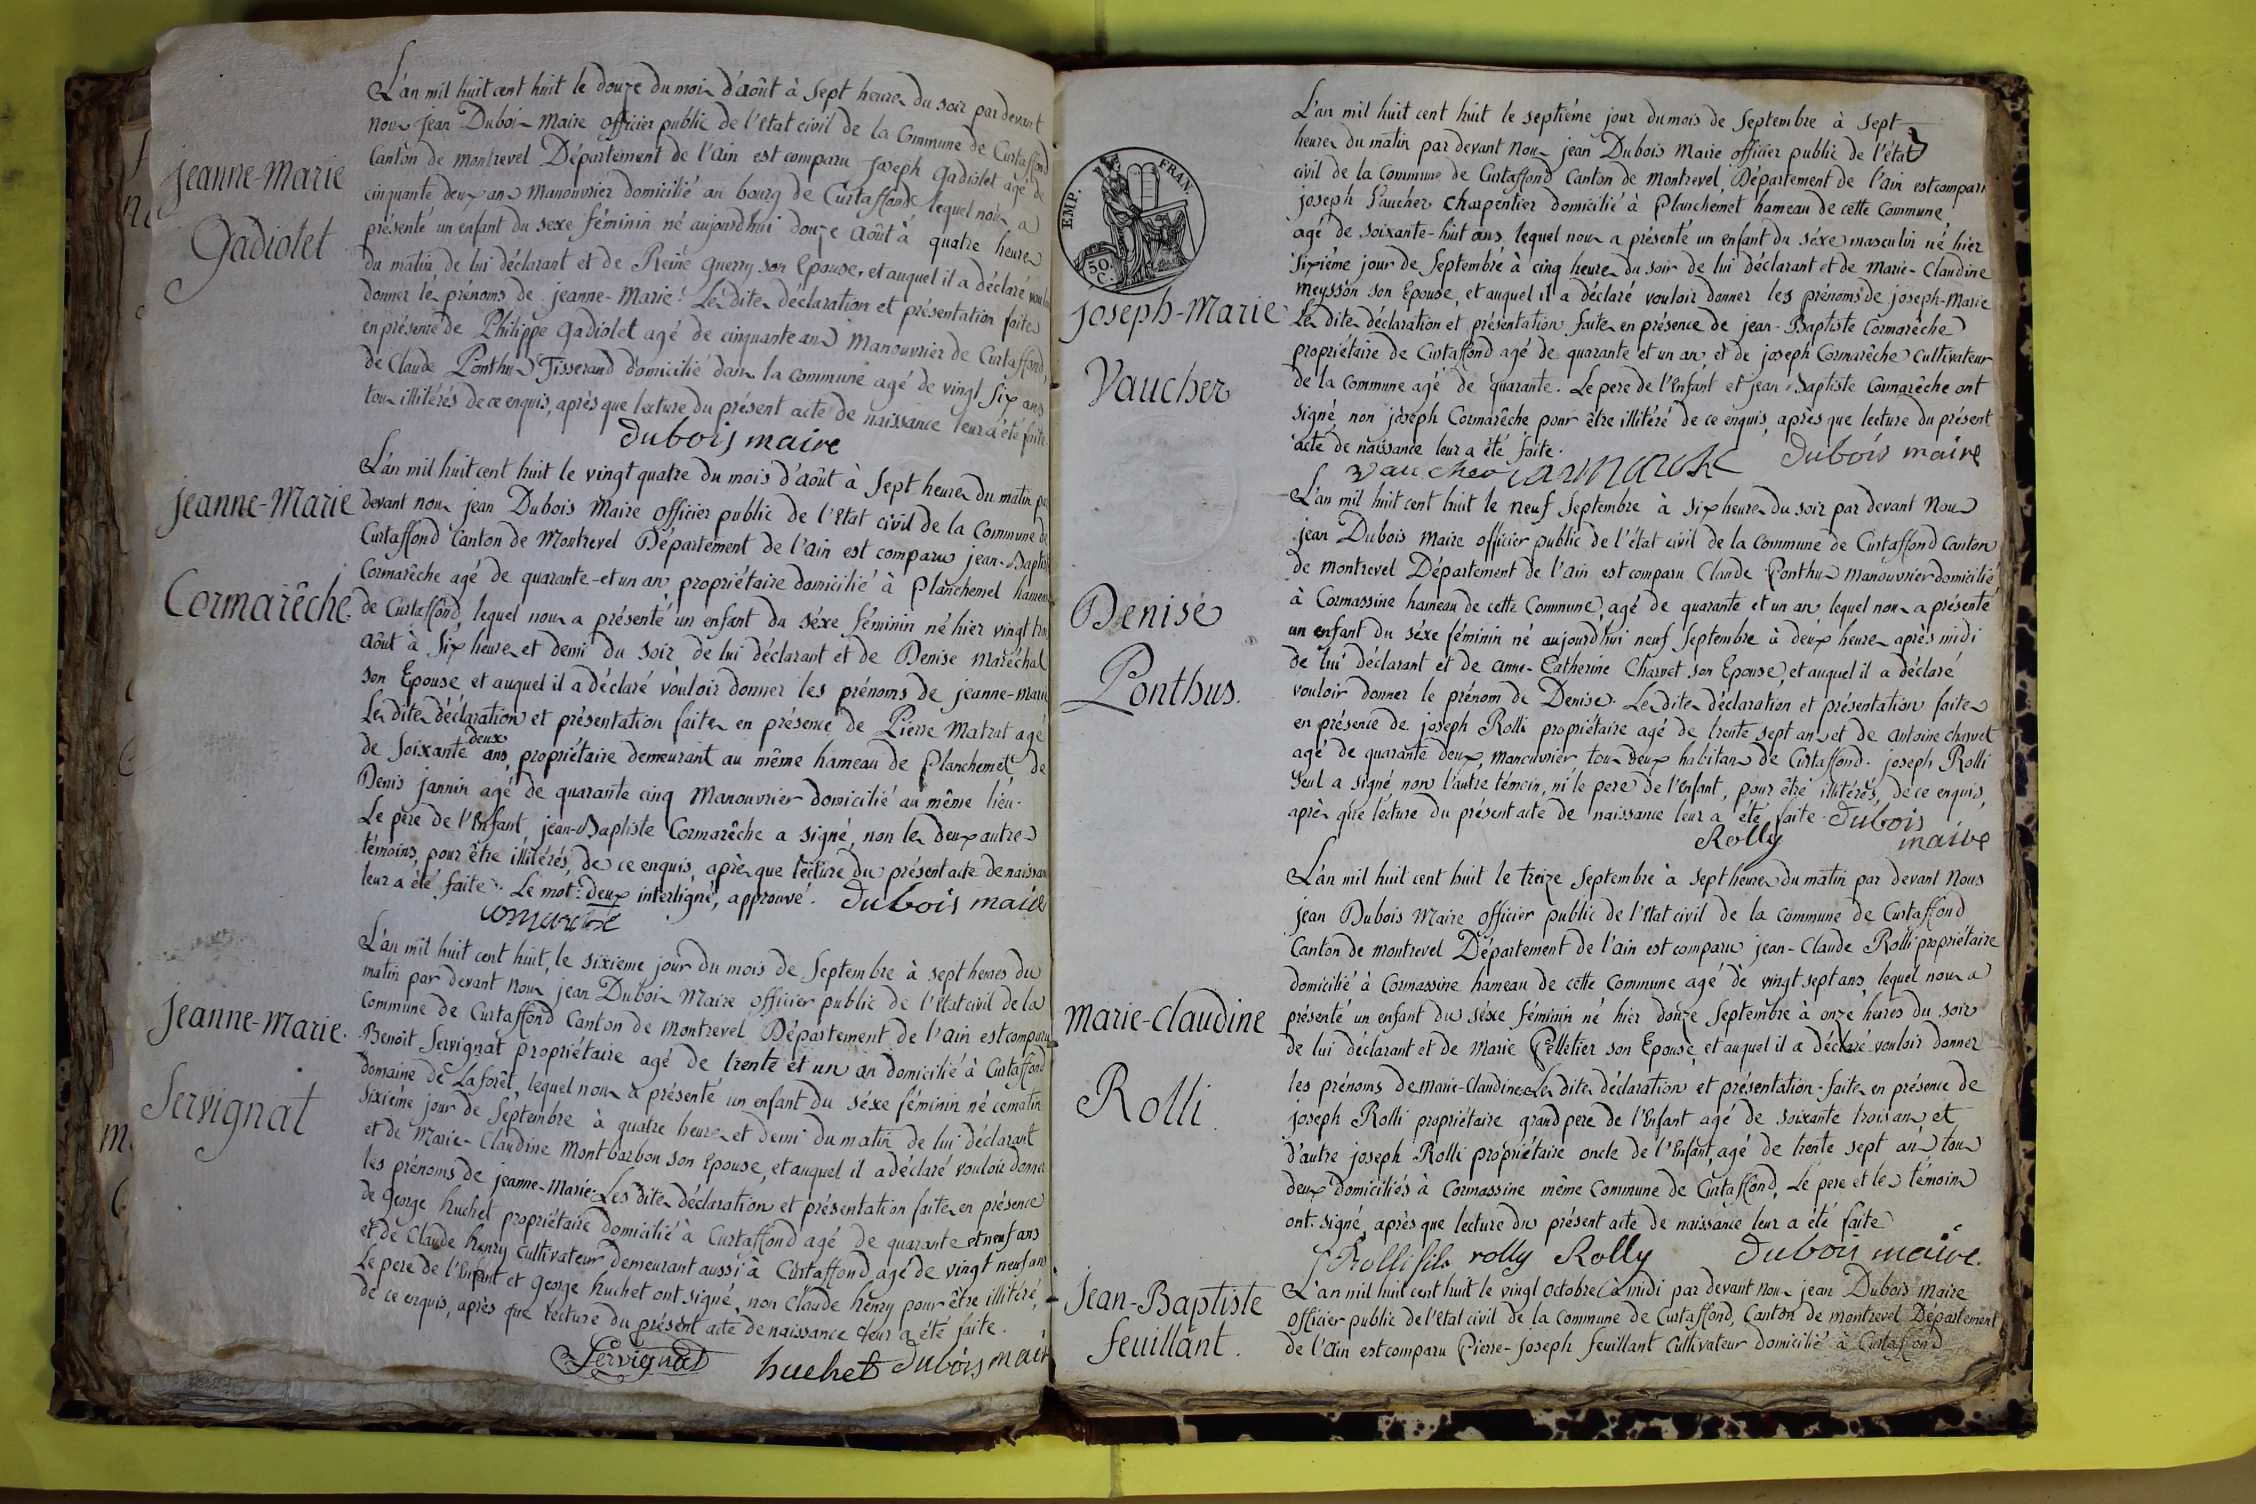 Jeanne-Marie
Gadiolet
L'an mil huit cent huit le douze du mois d'août à sept heures du soir par devant
nous Jean Dubois Maire officier public de l'état civil de la Commune de Curtaffond
Canton de montrevel Département de l'ain est comparu Joseph Gadiolet agé de
cinquante deux ans Manouvrier domicilié au bourg de Curtaffond lequel nous a
présenté un enfant du sexe féminin né aujourdhui douze Août à quatre heures
du matin de lui déclarant et de Reine Guerry son Epouse, et auquel il a déclaré vouloir
donner les prénoms de jeanne-Marie. Les dites déclaration et présentation faites
en présence de Philippe Gadiolet agé de cinquante ans Manouvrier de Curtaffond,
de Claude Ponthus Tisserand domicilié dans la commune agé de vingt six ans
tous illitérés de ce enquis, après que lecture du présent acte de naissance leur a été faite.
Dubois maire
Jeanne-Marie
Cormarêche
L'an mil huit cent huit le vingt quatre du mois d'août à sept heures du matin par
devant nous jean Dubois Maire officier public de l'Etat civil de la Commune de
Curtaffond Canton de Montrevel Département de l'ain est comparu jean-Baptiste
Cormarêche agé de quarante-et un an propriétaire domicilié à Planchemel hameau
de Curtaffond, lequel nous a présenté un enfant du séxe féminin né hier vingt trois
août à six heures et demi du soir de lui déclarant et de Denise Maréchal
son Epouse et auquel il a déclaré vouloir donner les prénoms de jeanne-Marie
Les dites déclaration et présentation faites en présence de Pierre Matrat agé
de soixante deux ans, propriétaire demeurant au même hameau de Planchemet, de
Denis jannin agé de quarante cinq Manouvrier domicilié au même lieu.
Le père de l'Enfant, jean-Baptiste Cormarêche a signé, non les deux autres
témoins, pour être illitérés, de ce enquis, après que lecture du présent acte de naissance
leur a été faite. Le mot: deux interligné, approuvé. Dubois maire
Jeanne-Marie.
Servignat
L'an mil huit cent huit, le sixieme jour du mois de Septembre à sept heures du
matin par devant nous jean Dubois Maire officier public de l'état civil de la
Commune de Curtaffond Canton de Montrevel Département de l'ain est comparu
Benoît Servignat propriétaire agé de trente et un an domicilié à Curtaffond
domaine de Laforêt, lequel nous a présenté un enfant du séxe féminin né ce matin
sixième jour de Septembre à quatre heures et demi du matin de lui déclarant
et de Marie-Claudine Montbarbon son Epouse, et auquel il a déclaré vouloir donner
les prénoms de jeanne-Marie. Les dites déclaration et présentation faites en présence
de George huchet propriétaire domicilié à Curtaffond agé de quarante et neuf ans
et de Claude henry cultivateur demeurant aussi à Curtaffond agé de vingt neuf ans
Le pere de l'Enfant et George huchet ont signé, non Claude henry pour être illitéré,
de ce enquis, après que lecture du présent acte de naissance leur a été faite.
Servignat huchet Dubois maire
EMP. FRAN.
50 C.
Joseph-Marie
Vaucher
L'an mil huit cent huit le septiéme jour du mois de Septembre à sept
heures du matin par devant nous jean Dubois Maire officier public de l'état
civil de la Commune de Curtaffond Canton de Montrevel Département de l'ain est comparu
joseph Vaucher charpentier domicilié à Planchemet hameau de cette Commune,
agé de soixante-huit ans lequel nous a présenté un enfant du séxe masculin né hier
sixième jour de Septembre à cinq heures du soir de lui déclarant et de Marie-Claudine
Meysson son Epouse, et auquel il a déclaré vouloir donner les prénoms de joseph-Marie
Les dites déclaration et présentation faites en présence de jean-Baptiste Cormarêche
propriétaire de Curtaffond agé de quarante et un an et de joseph Cormarêche Cultivateur
de la Commune agé de quarante. Le pere de l'Enfant et jean-Baptiste Cormarêche ont
signé, non joseph Cormarêche pour être illitéré de ce enquis, après que lecture du présent
acte de naissance leur a été faite. Dubois maire
Vaucher
Denise
Ponthus.
L'an mil huit cent huit le neuf Septembre à six heures du soir par devant Nous
jean Dubois Maire officier public de l'état civil de la Commune de Curtaffond Canton
de montrevel Département de l'ain est comparu Claude Ponthus Manouvrier domicilié
à Cormassine hameau de cette Commune, agé de quarante et un an lequel nous a présenté
un enfant du séxe féminin né aujourdhui neuf Septembre à deux heures après midi
de lui déclarant et de anne-Catherine Charvet son Epouse, et auquel il a déclaré
vouloir donner le prénom de Denise. Les dites déclaration et présentation faites
en présence de joseph Rolli propriétaire agé de trente sept ans et de antoine charvet
agé de quarante deux, manouvrier tous deux habitans de Curtaffond. joseph Rolli
seul a signé non l'autre témoin, ni le pere de l'enfant, pour être illitérés, de ce enquis,
après que lecture du présent acte de naissance leur a été faite. Dubois
Rolly maire
Marie-Claudine
Rolli.
L'an mil huit cent huit le treize Septembre à sept heures du matin par devant Nous
jean Dubois Maire officier public de l'état civil de la Commune de Curtaffond
Canton de montrevel Département de l'ain est comparu jean-Claude Rolli propriétaire
domicilié à Cormassine hameau de cette Commune agé de vingt sept ans, lequel nous a
présenté un enfant du séxe féminin né hier douze Septembre à onze heures du soir
de lui déclarant et de Marie Pelletier son Epouse, et auquel il a déclaré vouloir donner
les prénoms de Marie-Claudine. Les dites déclaration et présentation faites en présence de
joseph Rolli propriétaire grand pere de l'Enfant agé de soixante trois ans et
d'autre joseph Rolli propriétaire oncle de l'Enfant, agé de trente sept ans, tous
deux domiciliés à Cormassine même Commune de Curtaffond, Le pere et les témoins
ont signé, après que lecture du présent acte de naissance leur a été faite
Rolli fils rolly Rolly Dubois maire.
Jean-Baptiste
feuillant.
L'an mil huit cent huit le vingt octobre à midi par devant nous jean Dubois Maire
officier public de l'état civil de la Commune de Curtaffond, Canton de montrevel Département
de l'Ain est comparu Pierre-Joseph feuillant Cultivateur domicilié à Curtaffond